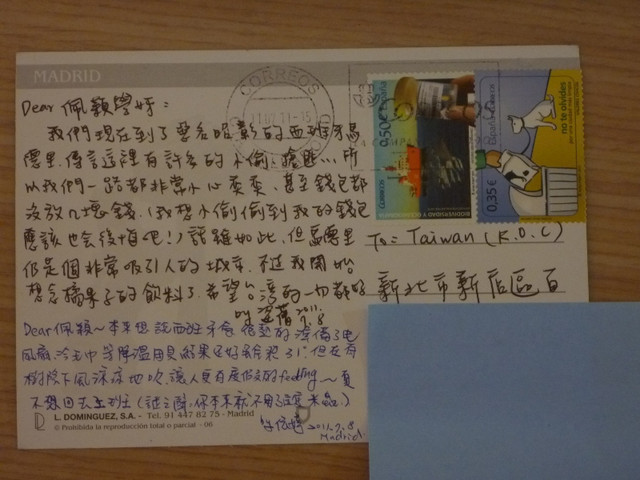 MADRID
CORREOS
Dear 佩穎學妹：
我們現在到了要名昭彰的西班牙馬
德里，傳說這裡有許多的小偷、搶匪…，所
以我們一路都非常小心柔柔，甚至錢包都
沒放幾塊錢，（我想小偷偷到我的錢包
應該也會後悔吧！）話雖如此，但馬德里
仍是個非常吸引人的城市，
想念 的飲料了，希望台灣的一切都好
2011.
7.8
Dear 佩穎～本來想說西班牙會很熱的準備了電
風扇、冷毛巾等降溫用具結果 但在有
樹陰下風涼涼地吹，讓人更有度假的feeling～真
不想回去上班
L. DOMINGUEZ, S.A. - Tel. 91 447 82 75 - Madrid
© Prohibida la reproducción total o parcial - 06
2011.7.8
Madrid.
0,50€
España
CORREOS
BIODIVERSIDAD Y OCEANOGRAFÍA
España CORREOS
0,35€
no te olvides
To: Taiwan (R.O.C)
新北市新店區百